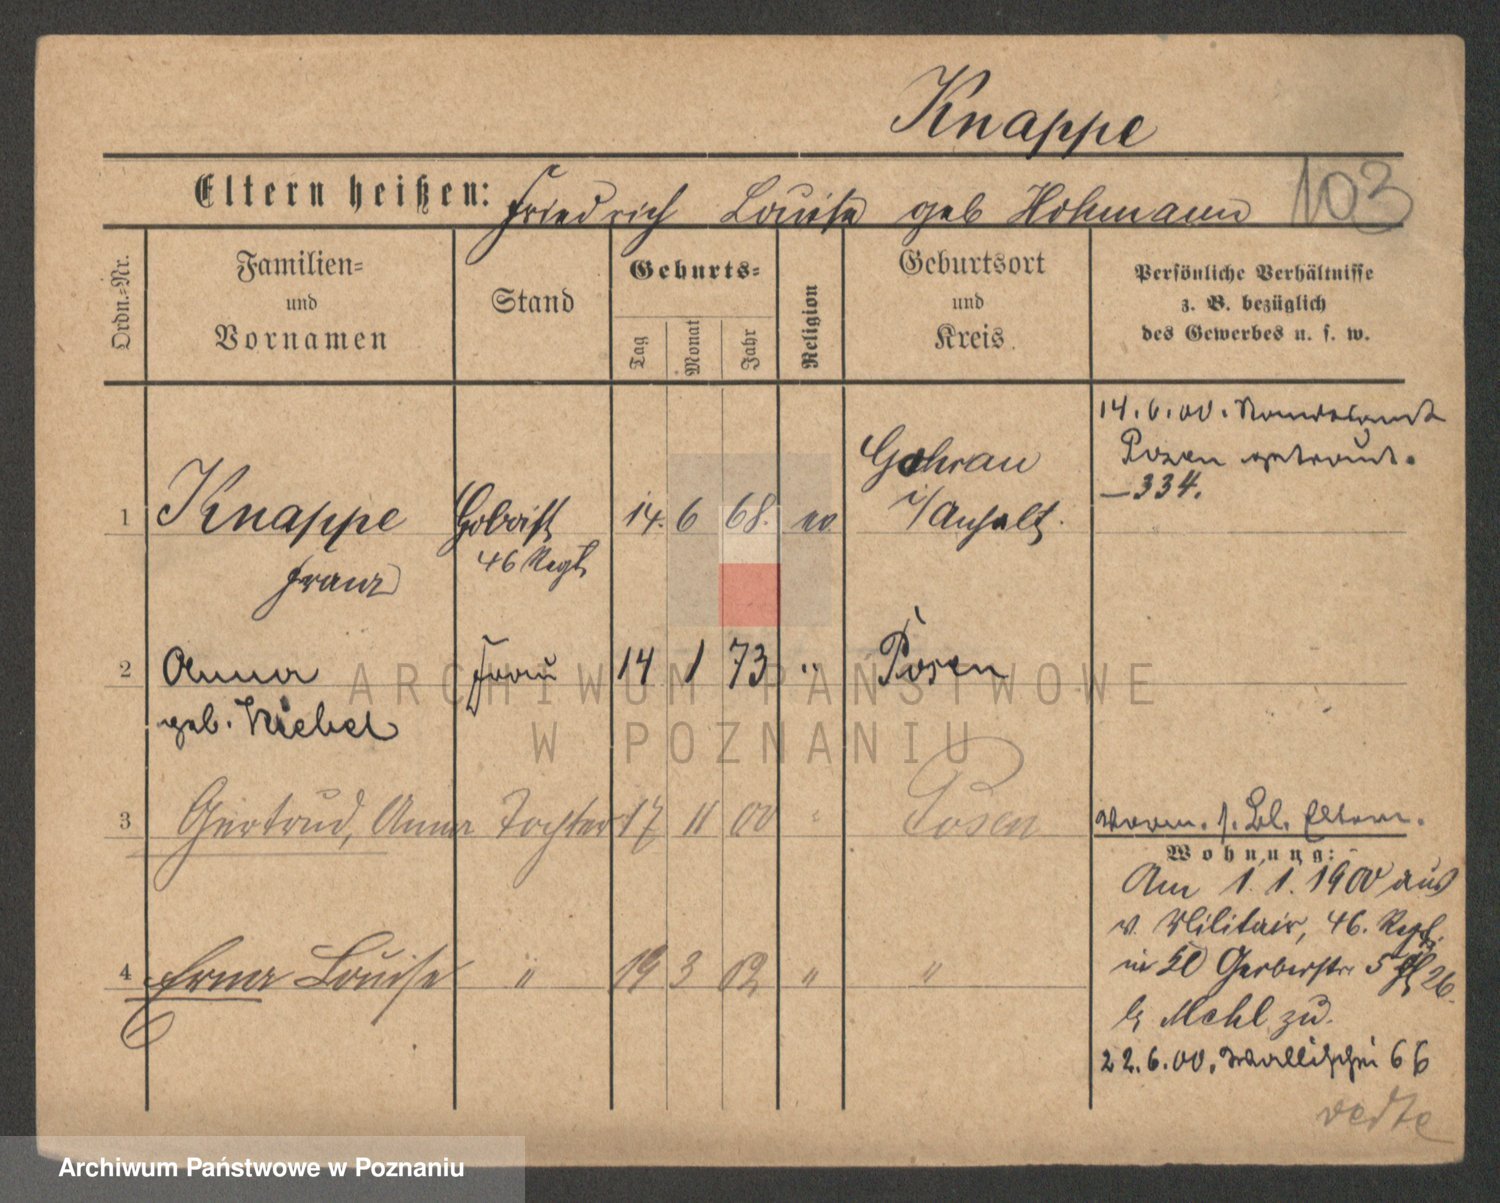 Knappe
Eltern heißen: Friedrich Louise geb Hohmann 103
Ordn.-Nr.
Familien-
und
Vornamen
Stand
Geburts-
Tag
Monat
Jahr
Religion
Geburtsort
und
Kreis.
Persönliche Verhältnisse
z. B. bezüglich
des Gewerbes u. s. w.
14. 6. 00. Standesamt
Posen getraut.
— 334.
1 Knappe Hoboist 14. 6 68. ev Gohrau
i/Anhalt.
Franz 46 Regt
2 Anna Frau 14 1 73 " Posen
geb. Niebel
3 Gertrud, Anna Tochter 17 11 00 " Posen
Vorm. s. Bl. Eltern.
Wohnung:
Am 1. 1. 1900 aus
v. Militair, 46. Regt.
in 50 Gerberstr. 5 26
b Mehl zu.
22. 6. 00. Wallischei 66
4 Erna Louise " 19 3 02 " "
ARCHIWUM PAŃSTWOWE
W POZNANIU
Archiwum Państwowe w Poznaniu